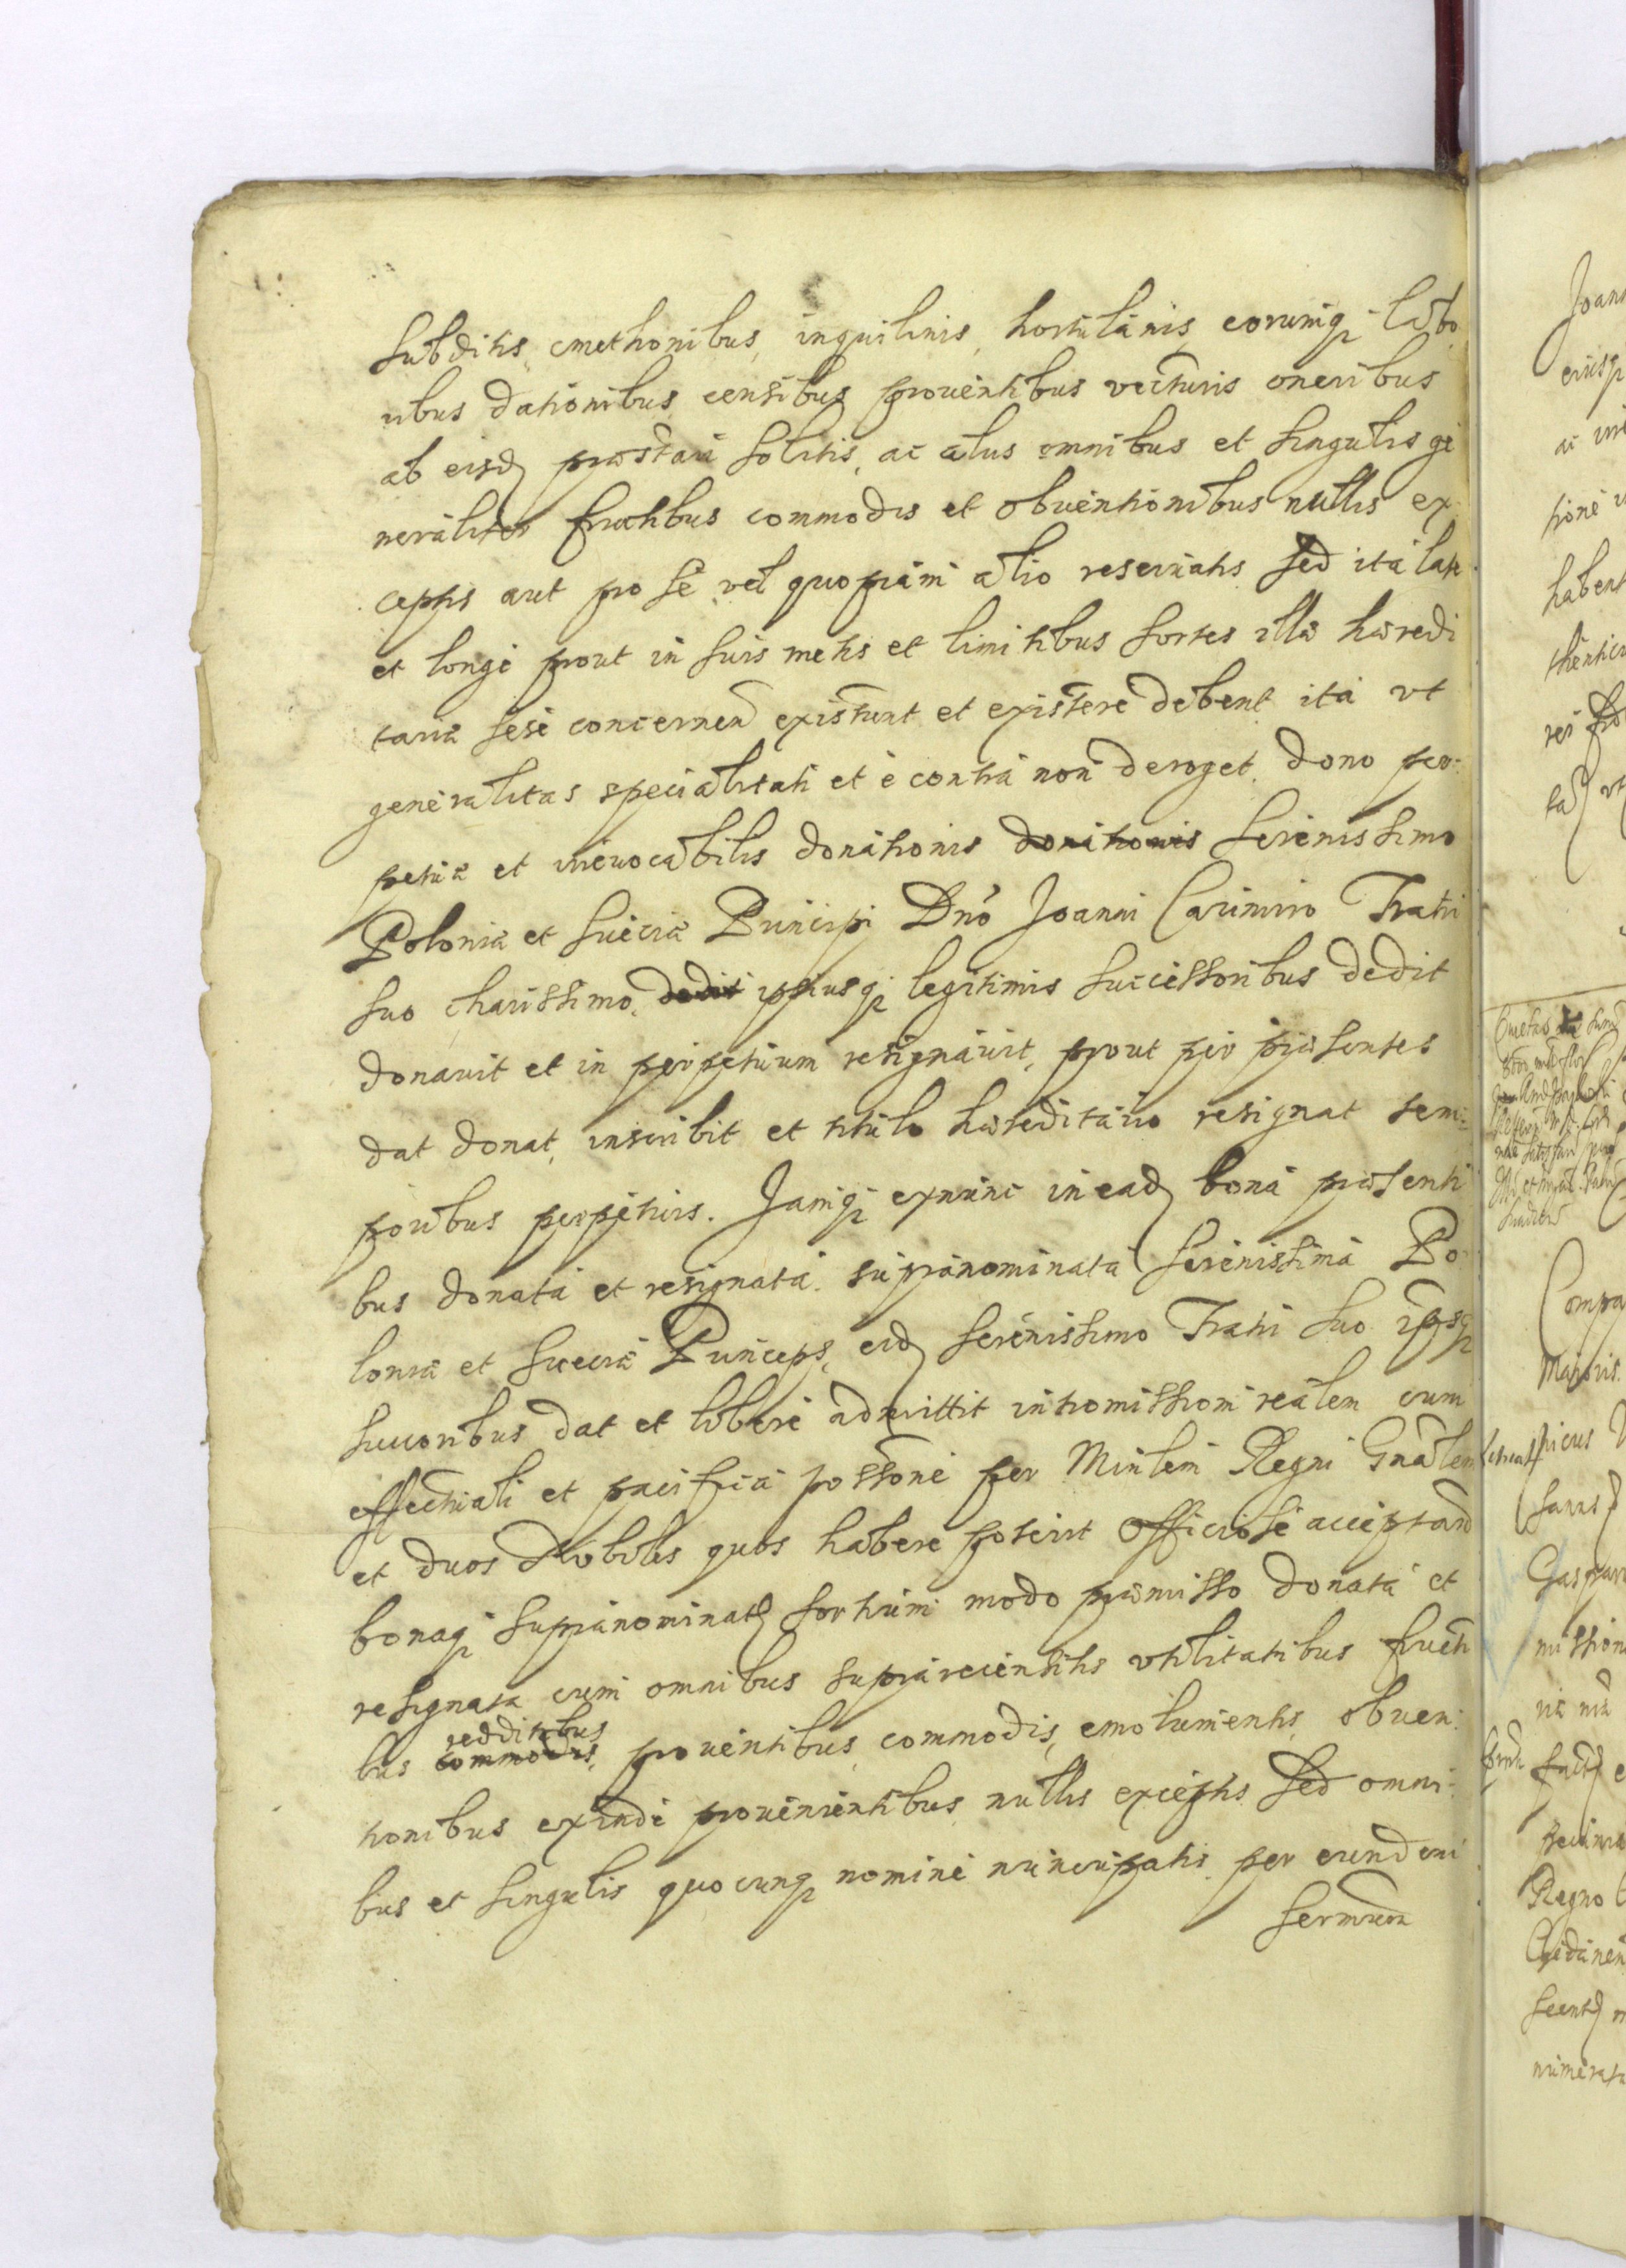 subditis, cmethonibus, inquilinis, hortulanis, eorumq; labo
ribus dationibus, censibus prouentibus vecturis oneribus
ab eisd præstari solitis, ac alijs omnibus et singulis ge
neraliter fructibus commodis et obuentionibus nullis ex
ceptis aut pro se vel quopiam alio reseruatis sed ita late
et longe prout in suis metis et limitibus sortes illæ hæredi
tariæ sese concernen existunt et existere debent ita vt
generalitas specialitati et è contra non deroget. dono per=
petuæ et irreuocabilis donationis donationis Serenissimo
Poloniæ et Sueciæ Principi Dno Joanni Casimiro Fratri
suo charissimo, dedit ipsiusq; legitimis successoribus dedit
donauit et in perpetuum resignauit, prout per præsentes
dat donat, inscribit et titulo hæreditario resignat tem=
poribus perpetuis. Jamq; exnunc in ead bona præsenti
bus donata et resignata. supranominata Serenissima Po
loniæ et Sueciæ Princeps, eid Serenissimo Fratri suo ipsq
succoribus dat et libere admittit intromissionem realem cum
effectuali et pacifica possone per Minlem Regni Gnalem
et duos Nobiles quos habere poterit officiose acceptand
bonaq; supranominat sortium modo præmisso donata et
resignata cum omnibus suprarecensitis vtilitatibus fructi
redditibus
bus commodis, prouentibus commodis, emolumentis, obuen=
tionibus exinde prouenientibus nullis exceptis sed omni=
bus et singulis quocunq; nomine nuncupatis. per eundem
Sermum
Joann
eiusp
ac
tione
habent
thentic
rei
Compa
Maioris.
ficus
Gaspar
mission
Regno
Gedanen
numerata